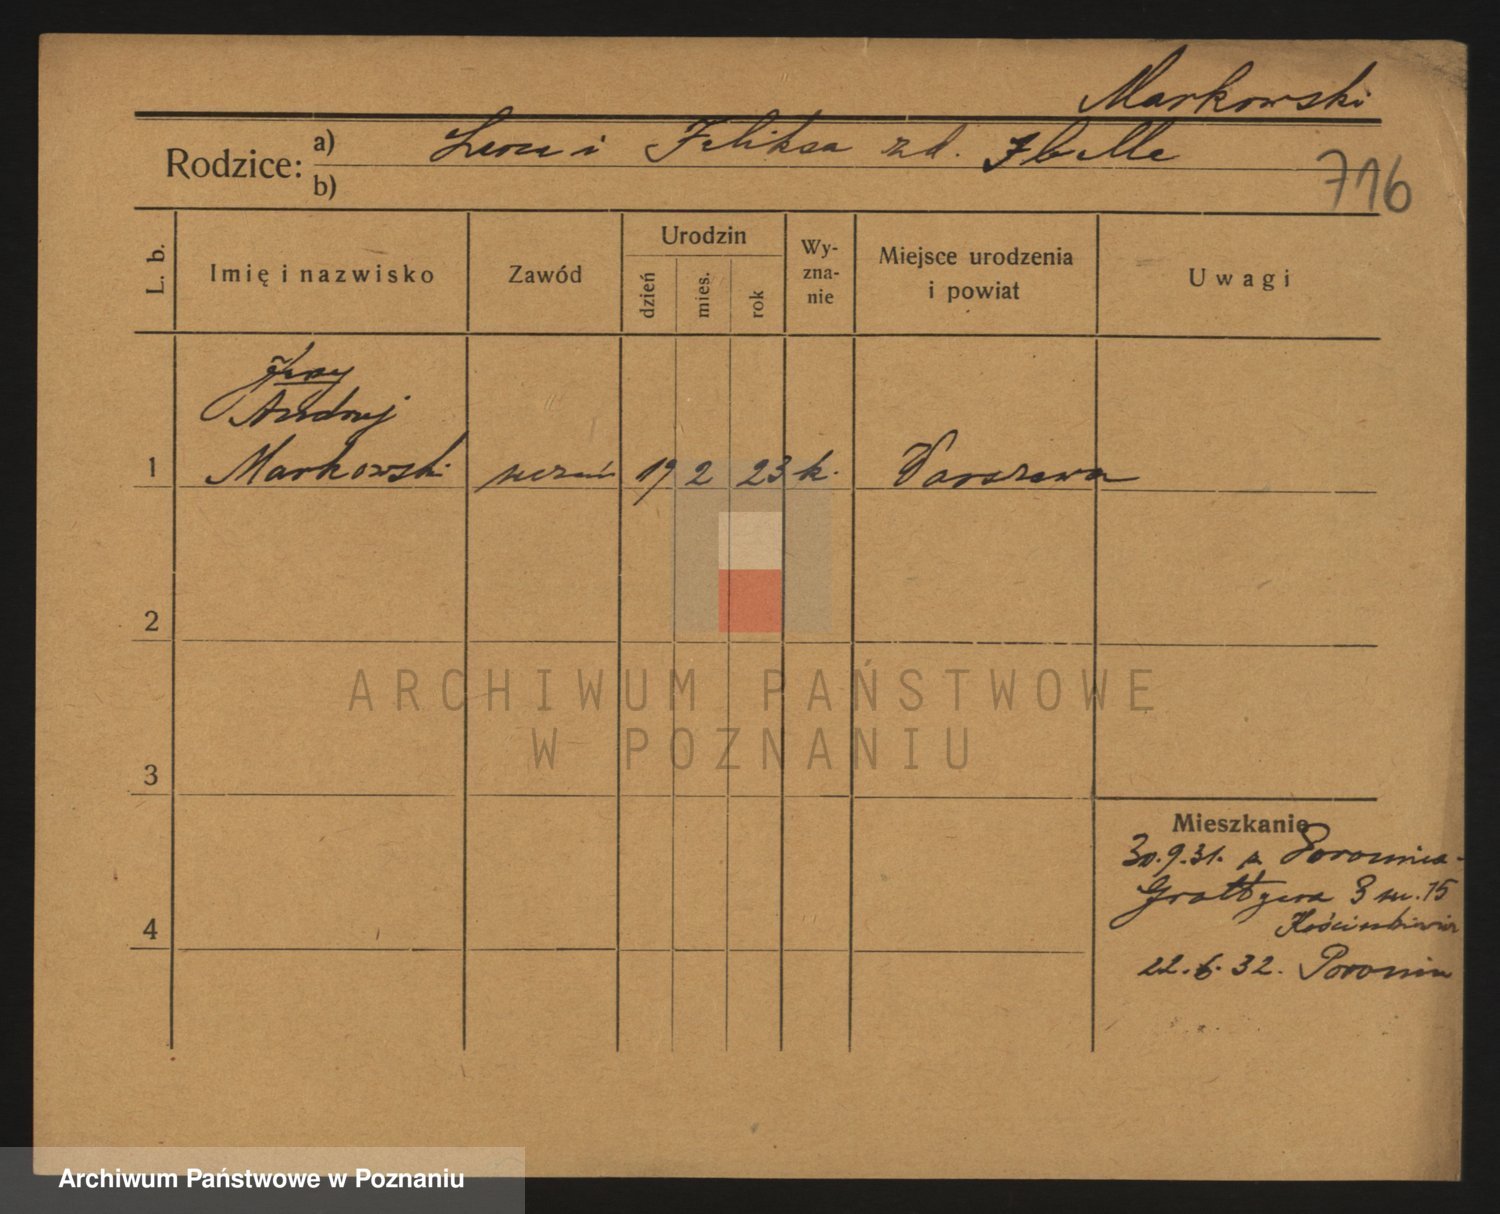 Markowski
Rodzice: a) Leon i Feliksa zd. Zbelle
b)
716
L. b.
Imię i nazwisko
Zawód
Urodzin
dzień
mies.
rok
Wy-
zna-
nie
Miejsce urodzenia
i powiat
Uwagi
Jerzy
Andrzej
1 Markowski uczeń 19 2 23 k. Warszawa
2
ARCHIWUM PAŃSTWOWE
W POZNANIU
3
Mieszkanie
30.9.31. z Poronina -
Grottgera 3 m. 15
4
22.6.32. Poronin
Archiwum Państwowe w Poznaniu